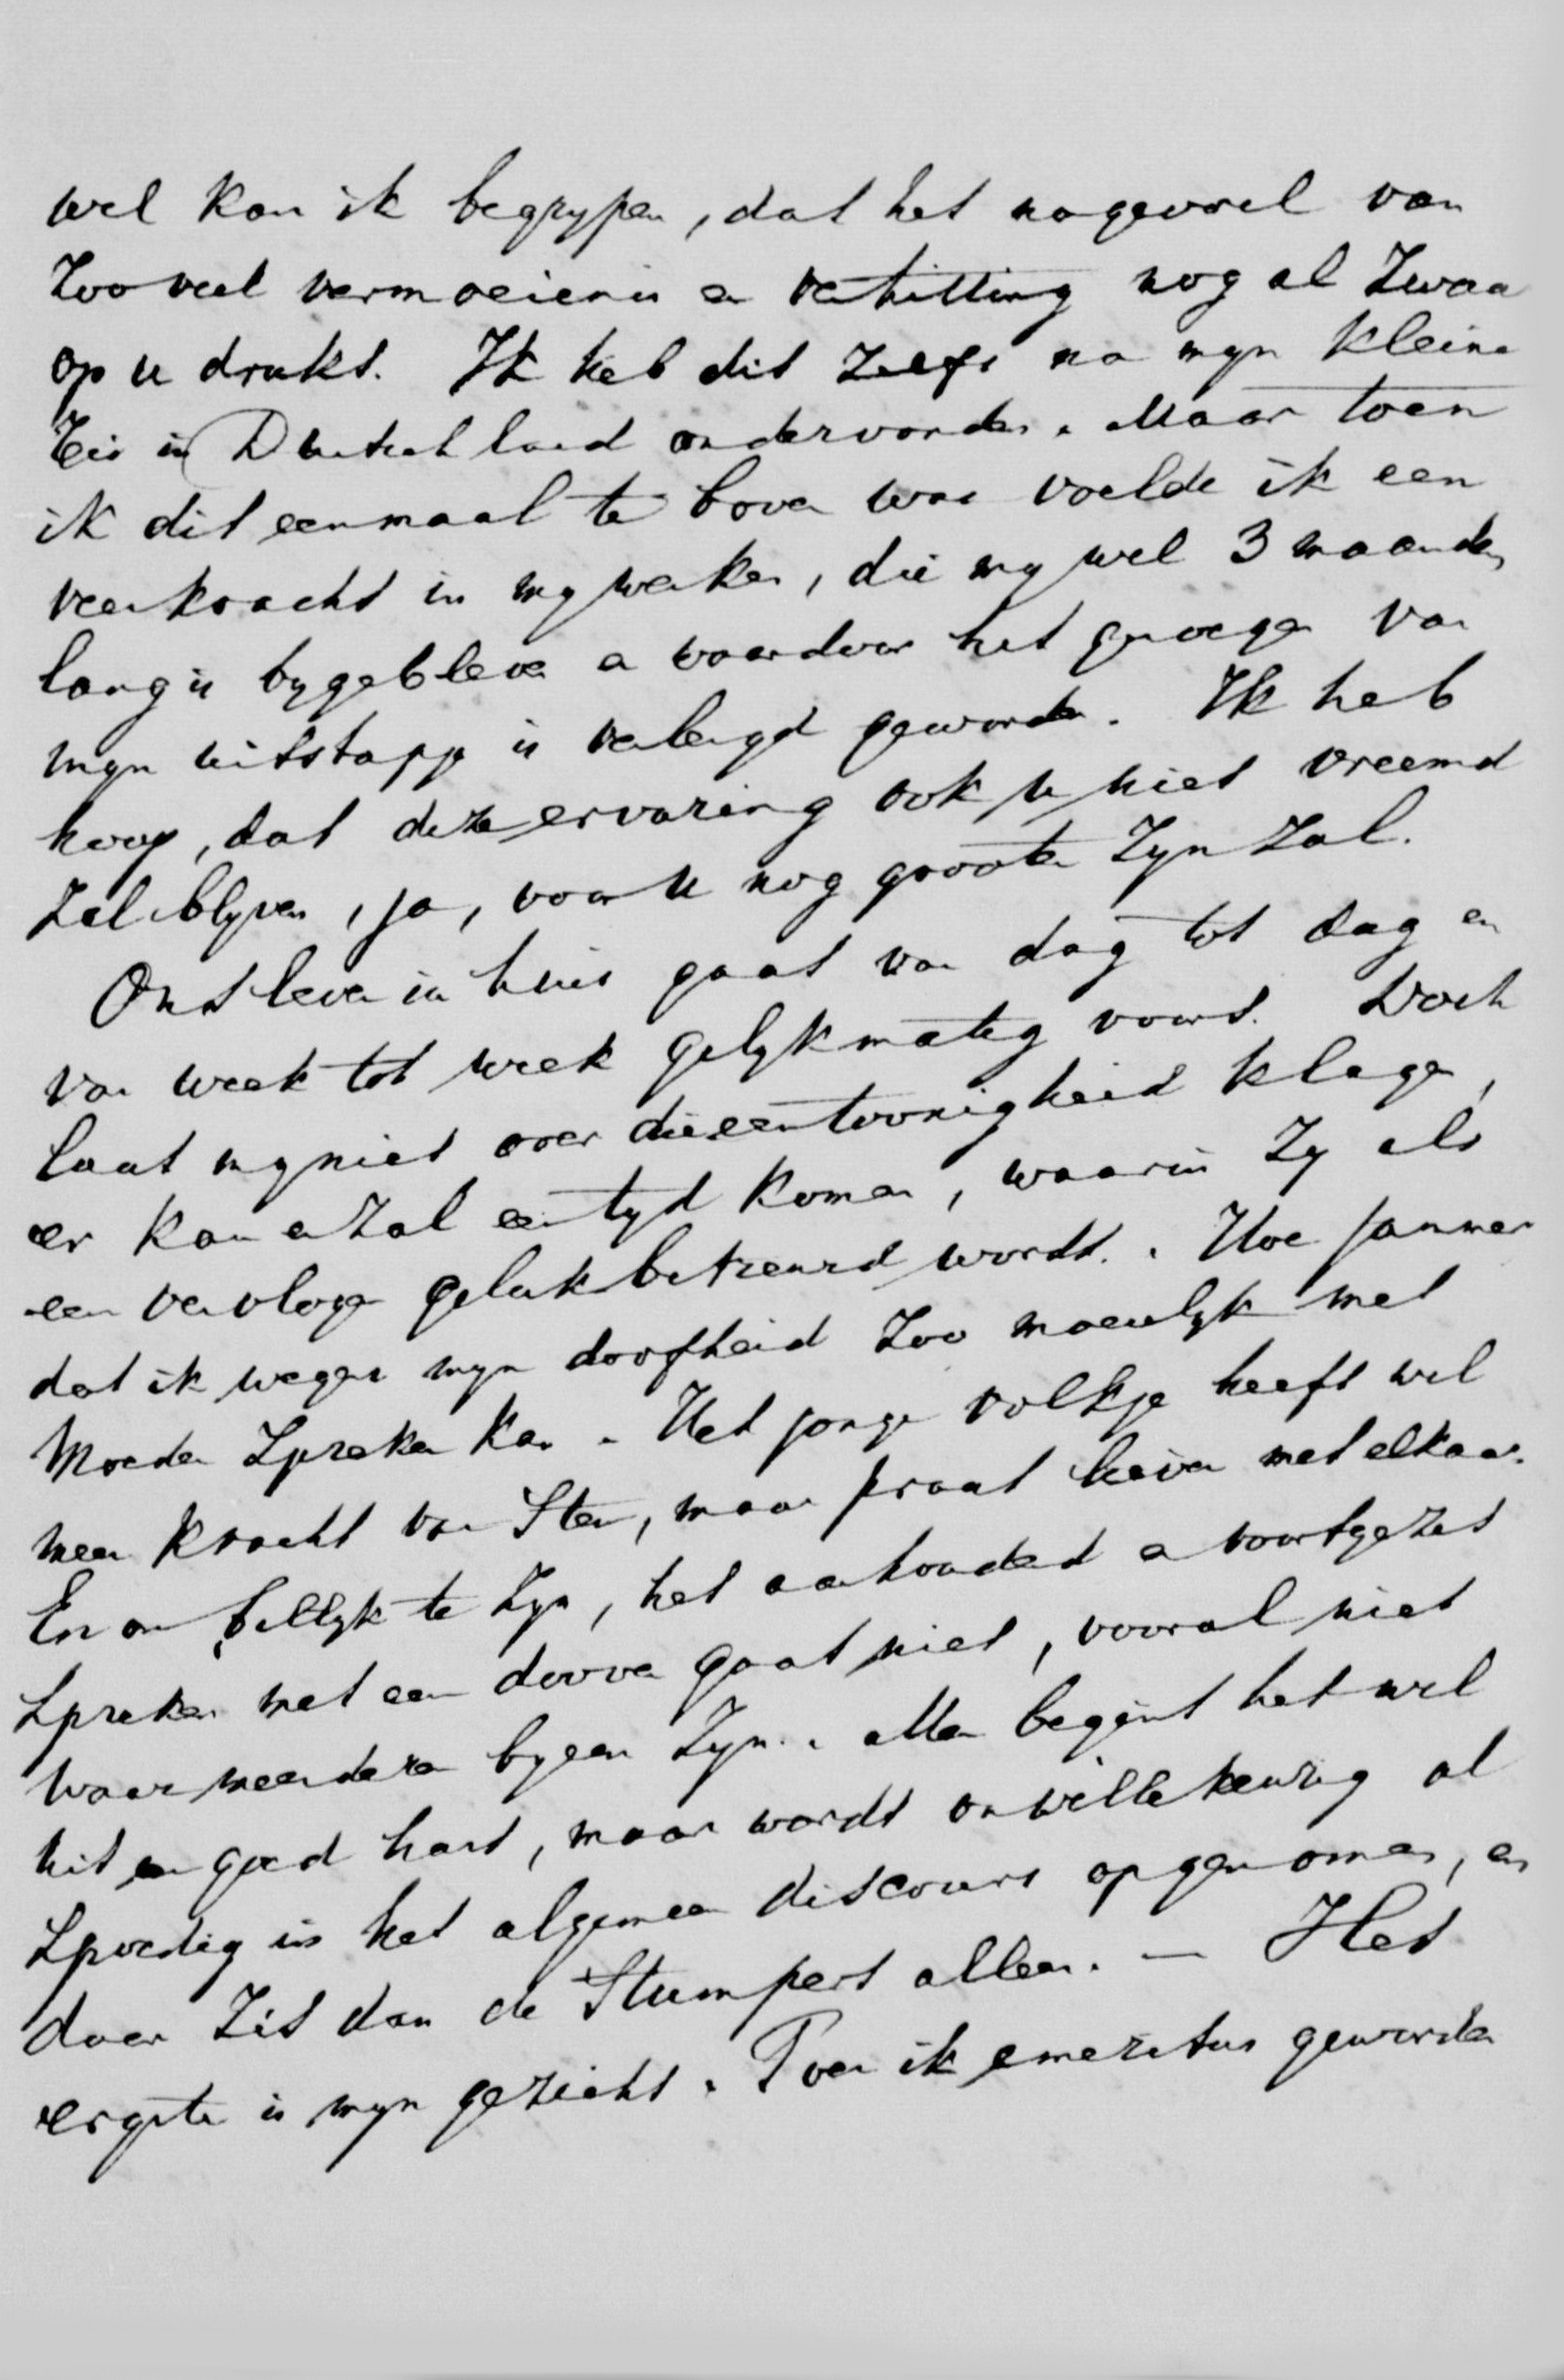 wel kan ik begrypen, dat het nagevoel van
zooveel vermoeienis en verhitting nog al zwaar
op u drukt. Ik heb dit zelfs na myn kleine
reis in Duitschland ondervonden. Maar toen
ik dit eenmaal te boven was voelde ik een
veerkracht in my werken, die my wel 3 maanden
lang is bygebleven en waardoor het genoegen van
myn uitstapje is verlengd geworden. Ik heb
hoop, dat deze ervaring ook u niet vreemd
zal blyven, ja, voor u nog grooter zyn zal.
Ons leven in huis gaat van dag tot dag en
van week tot week gelykmatig voort. Doch
laat my niet over die eentoonigheid klagen,
er kan en zal een tyd komen, waarin zy als
een vervlogen geluk betreurd wordt. Hoe jammer
dat ik wegens myn doofheid zoo moeielyk met
Moeder spreken kan. Het jonge volkje heeft wel
meer kracht van stem, maar praat liever met elkaar.
En om billyk te zyn, het aanhoudend en voortgezet
spreken met een doove gaat niet, vooral niet
waar meerdere byeen zyn. Men begint het wel
uit een goed hart, maar wordt onwillekeurig al
spoedig in het algemeen discours opgenomen, en
daar zit dan de stumpert alleen. — Het
ergste is myn gezicht. Toen ik emeritus geworden